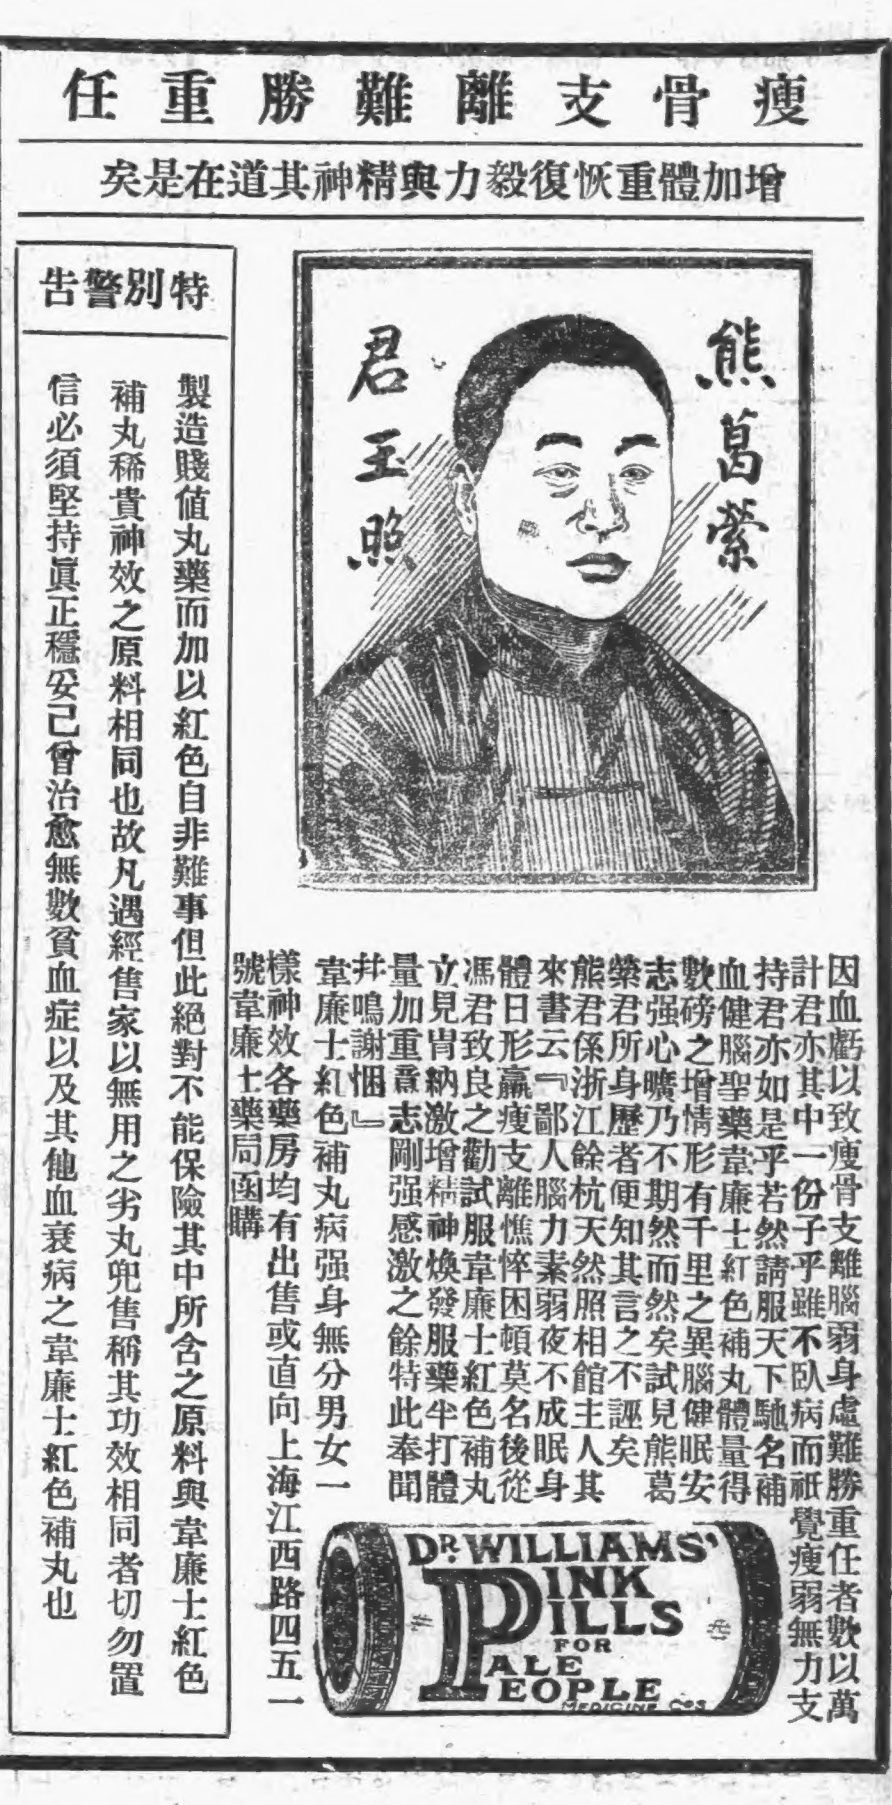 瘦骨支離難勝重任
增加體重恢復毅力與精神其道在是矣
熊葛縈
君玉照
因血虧以致瘦骨支離腦弱身虛難勝重任者數以萬
計君亦其中一份子乎雖不臥病而祇覺瘦弱無力支
持君亦如是乎若然請服天下馳名補
血健腦聖藥韋廉士紅色補丸體量得
數磅之增情形有千里之異腦健眠安
志强心曠乃不期然而然矣試見熊葛
縈君所身歷者便知其言之不誣矣
熊君係浙江餘杭天然照相館主人其
來書云『鄙人腦力素弱夜不成眠身
體日形羸瘦支離憔悴困頓莫名後從
馮君致良之勸試服韋廉士紅色補丸
立見胃納激增精神煥發服藥半打體
量加重意志剛强感激之餘特此奉聞
幷鳴謝悃』
韋廉士紅色補丸病强身無分男女一
樣神效各藥房均有出售或直向上海江西路四五一
號韋廉士藥局函購
DR. WILLIAMS'
PINK
PILLS
FOR
PALE
PEOPLE
MEDICINE Cos
特別警告
製造賤值丸藥而加以紅色自非難事但此絕對不能保險其中所含之原料與韋廉士紅色
補丸稀貴神效之原料相同也故凡遇經售家以無用之劣丸兜售稱其功效相同者切勿置
信必須堅持眞正穩妥已曾治愈無數貧血症以及其他血衰病之韋廉士紅色補丸也